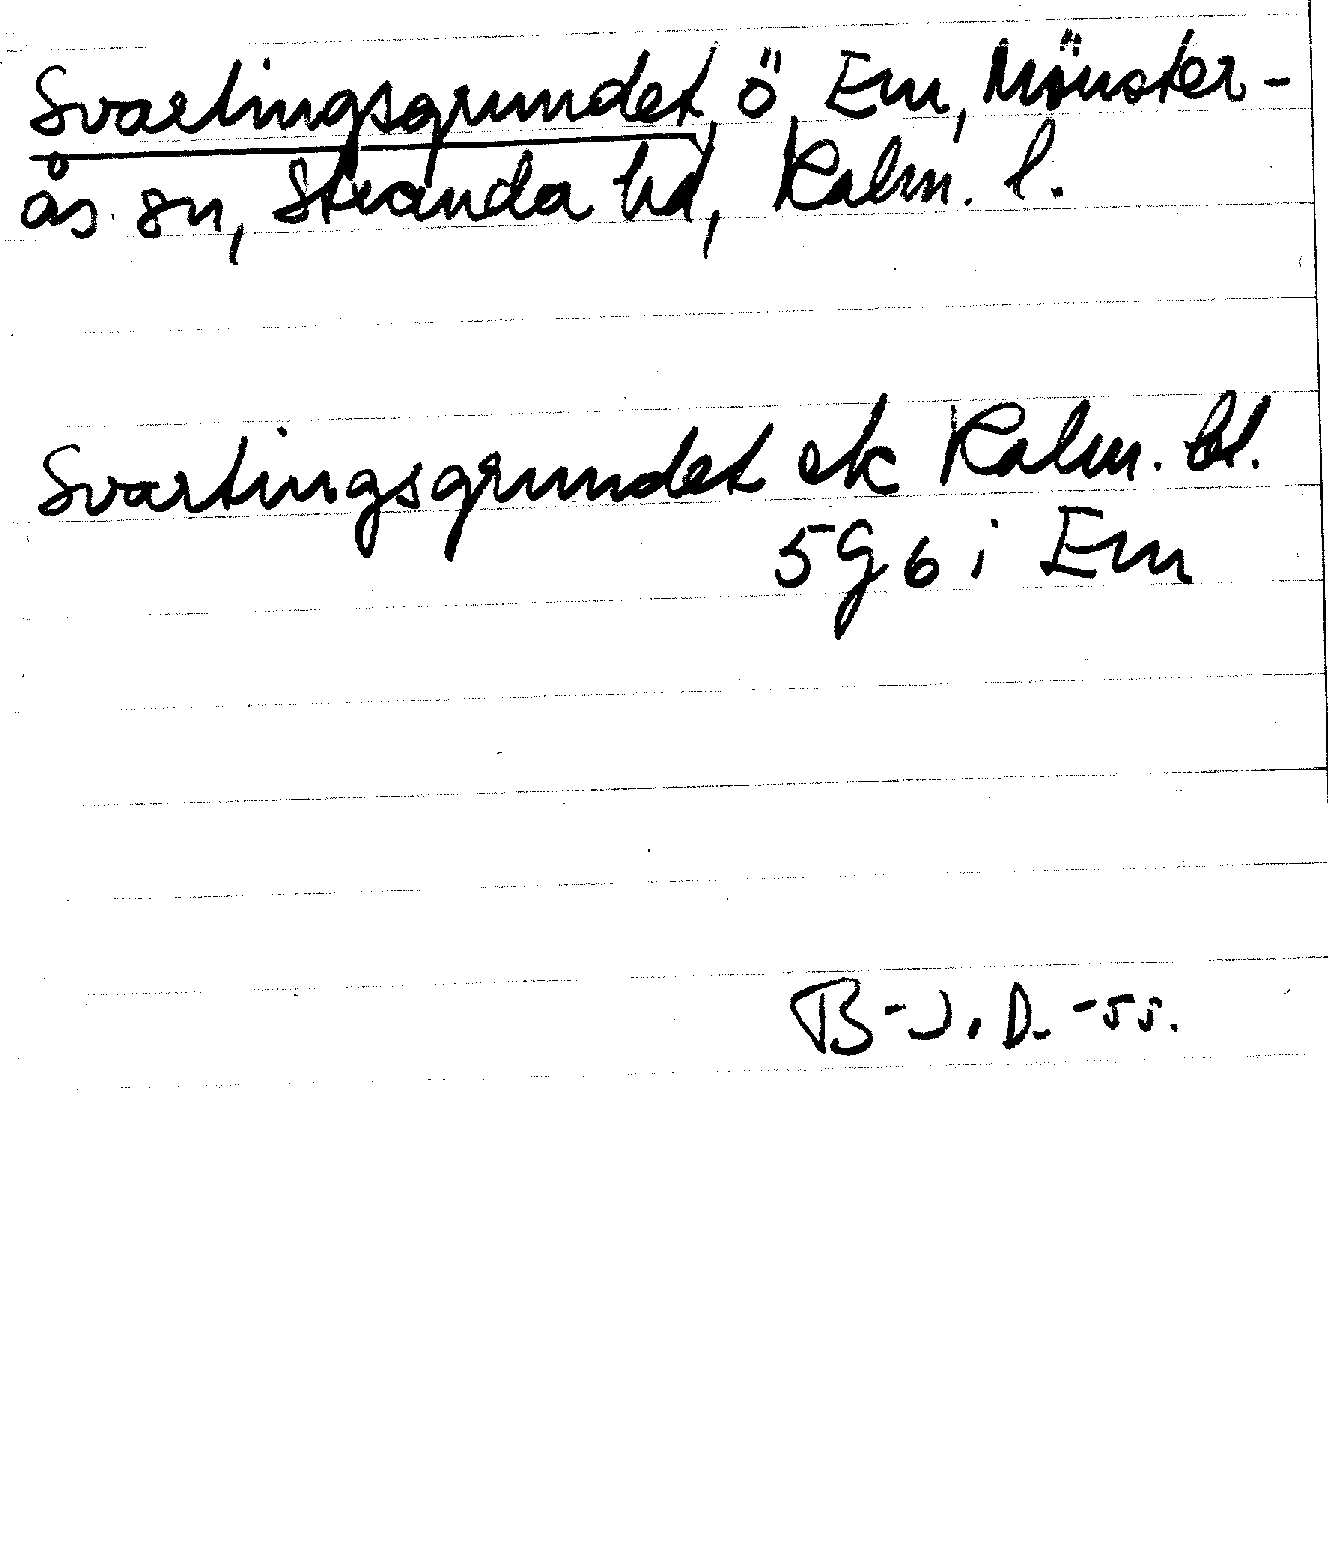 Svartingsgrundet, ö, Em, Mönster-
ås sn, Stranda hd, Kalm. l.
Svartingsgrundet ek Kalm. bl.
5g6i Em
B-J. D. -55.